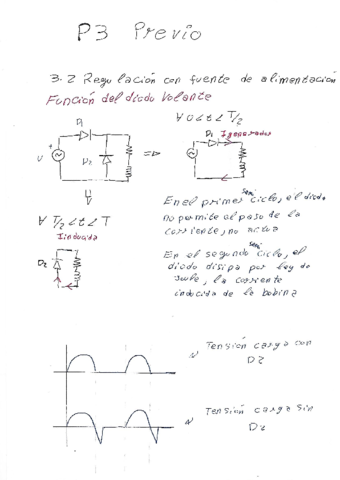 P3 Previo
3.2 Regulación con fuente de alimentación
Función del diodo Volante
∀ 0<t<T/2
D1
V
+
D2
⇒
D1 Igenerador
⇓
∀ T/2<t<T
Iinducida
D2
En el primer semi ciclo, el diodo
no permite el paso de la
corriente, no actúa
En el segundo semi ciclo, el
diodo disipa por ley de
Joule, la corriente
inducida de la bobina
Tensión carga con
D2
Tensión carga sin
D2